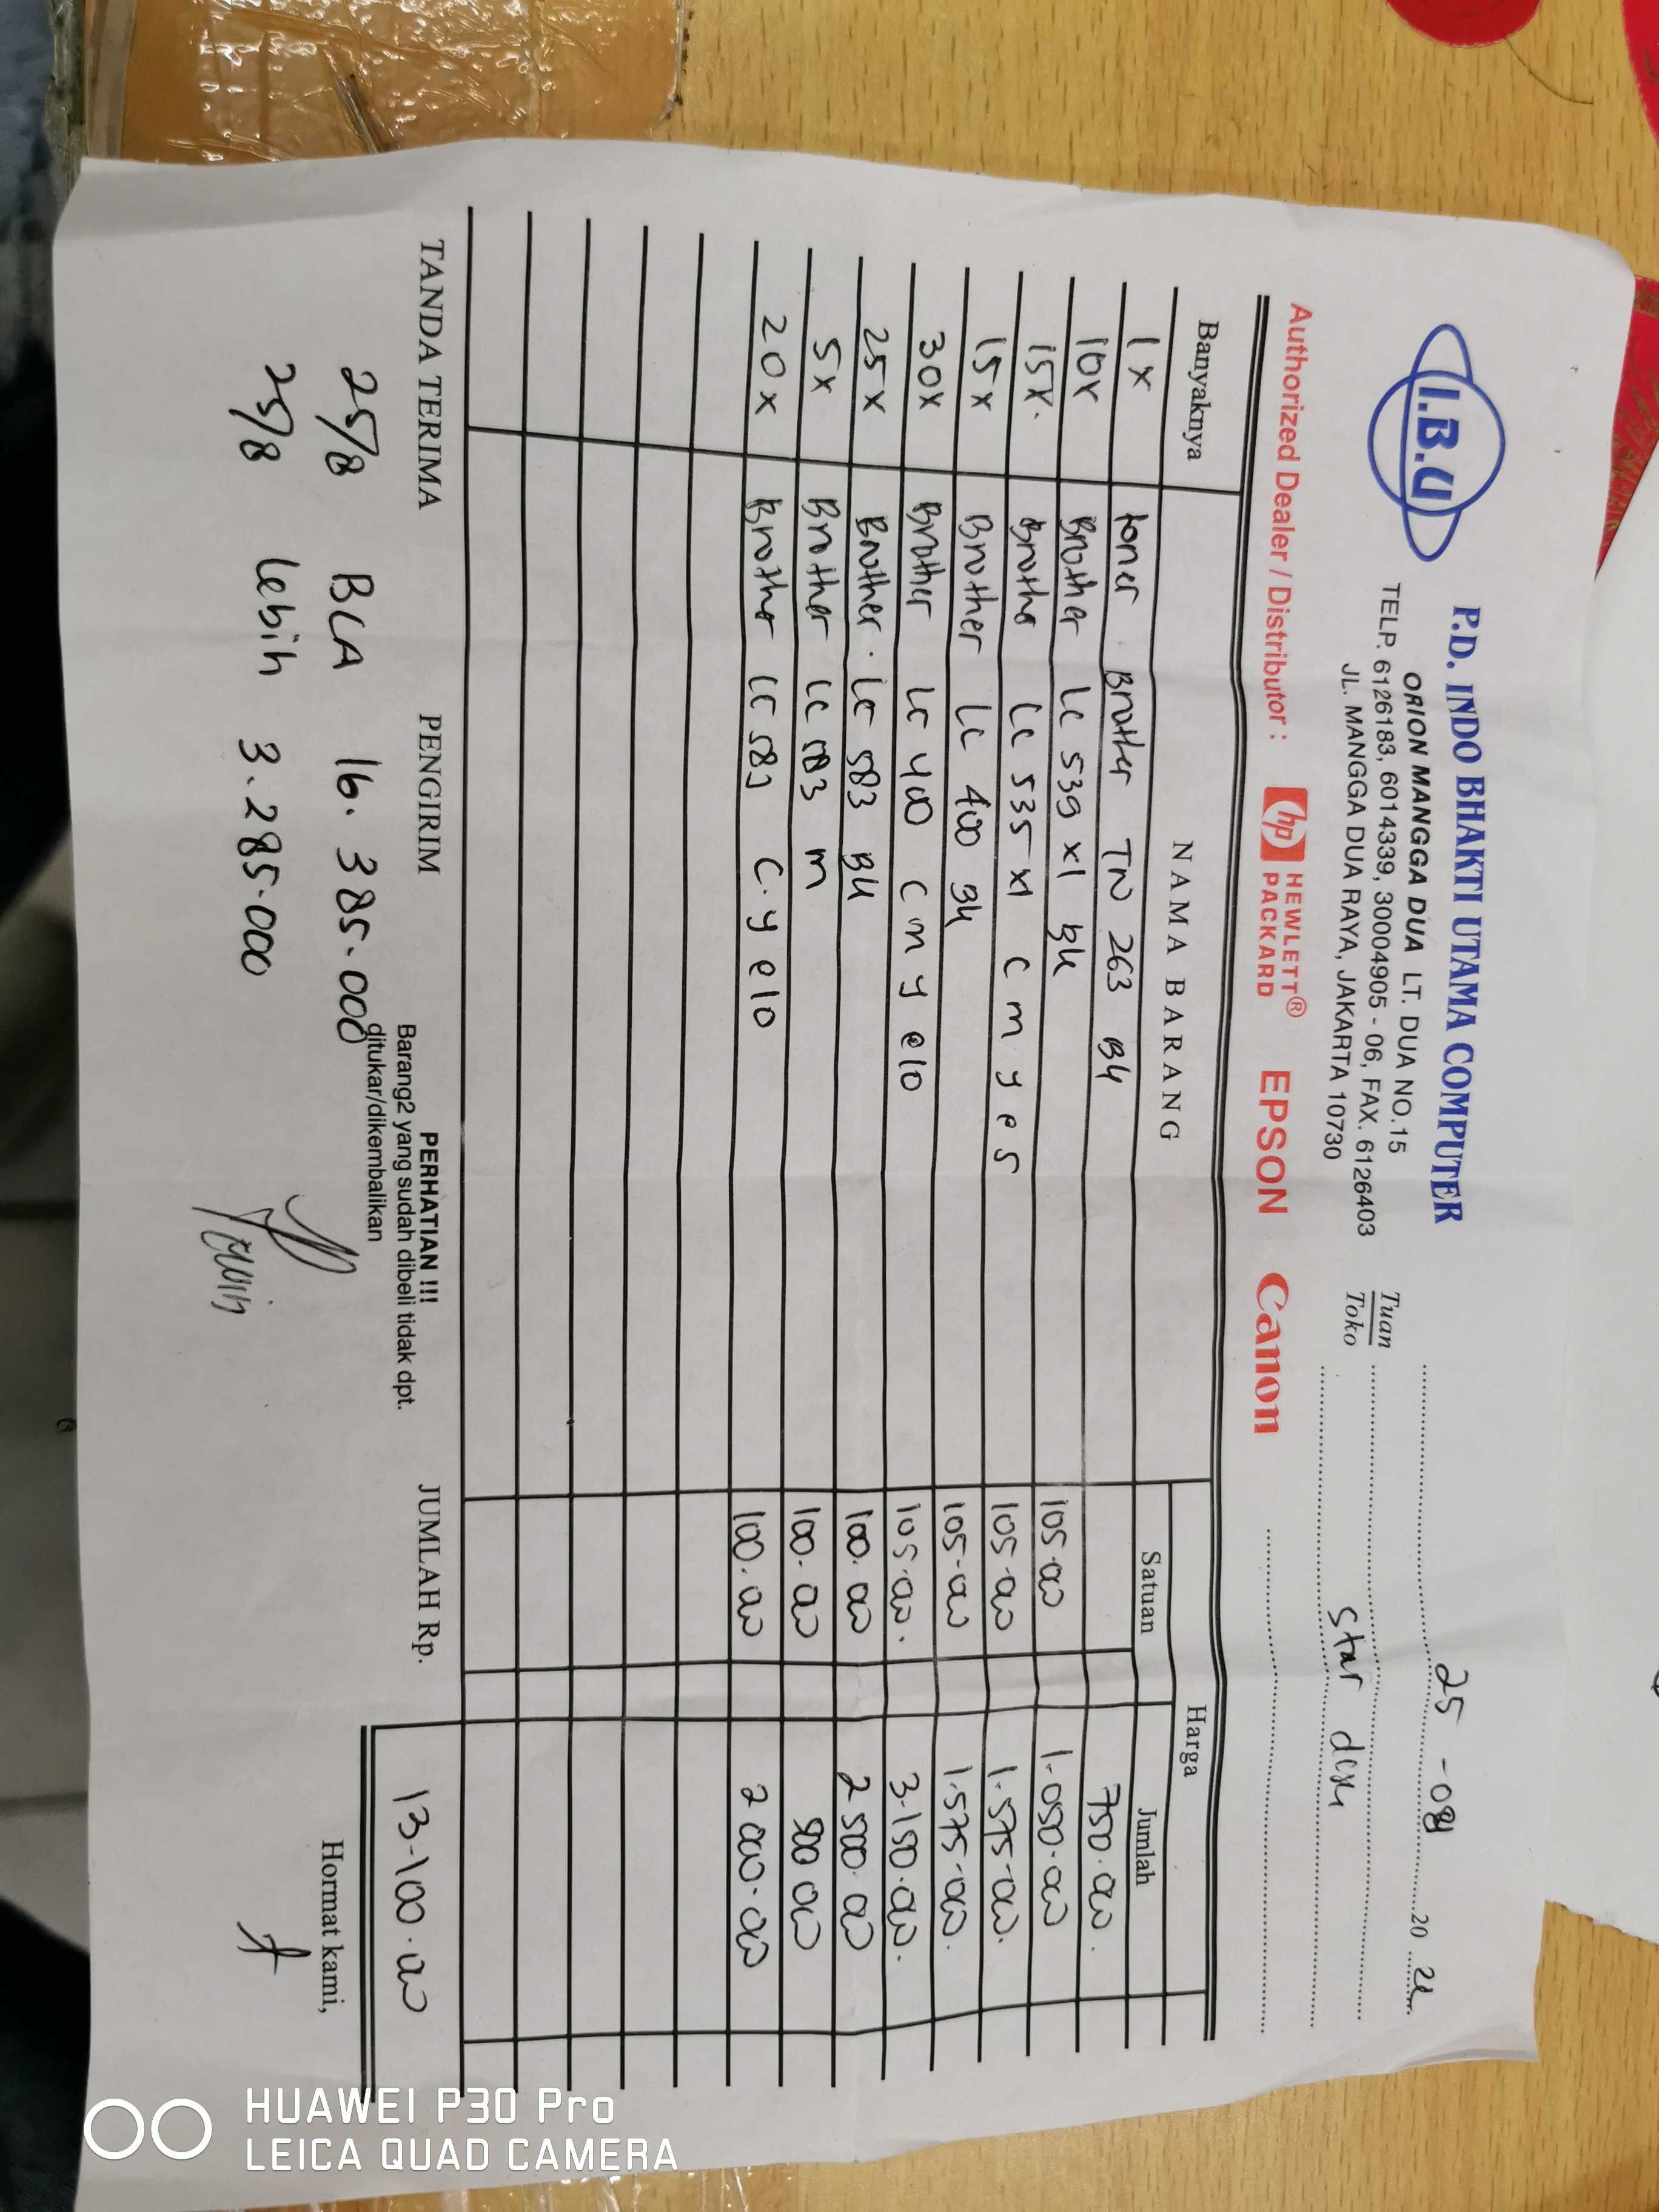 I.B.U
P.D. INDO BHAKTI UTAMA COMPUTER
ORION MANGGA DUA LT. DUA NO.15
TELP. 6126183, 6014339, 30004905 - 06, FAX. 6126403
JL. MANGGA DUA RAYA, JAKARTA 10730
25 - 08 20
Tuan
Toko
Star
Authorized Dealer / Distributor : hp HEWLETT® PACKARD EPSON Canon
Banyaknya NAMA BARANG Harga
Satuan Jumlah
1x toner Brother TN 263 Bk 750.000.
10x Brother Lc 539 xl Bk 105.000 1.050.000
15x. Brother Lc 535 xl c m y e 5 105.000 1.575.000.
15x Brother Lc 400 Bk 105.000 1.575.000.
30x Brother Lc 400 c m y elo 105.000. 3.150.000.
25x Brother. Lc 583 Bk 100.000 2500.000
5x Brother Lc 583 m 100.000 500 000
20x Brother Lc 583 C.y elo 100.000 2000.000
TANDA TERIMA PENGIRIM PERHATIAN !!! JUMLAH Rp. 13.100.000
Barang2 yang sudah dibeli tidak dpt.
ditukar/dikembalikan
Hormat kami,
25/8 BCA 16.385.000
25/8 lebih 3.285.000
HUAWEI P30 Pro
LEICA QUAD CAMERA